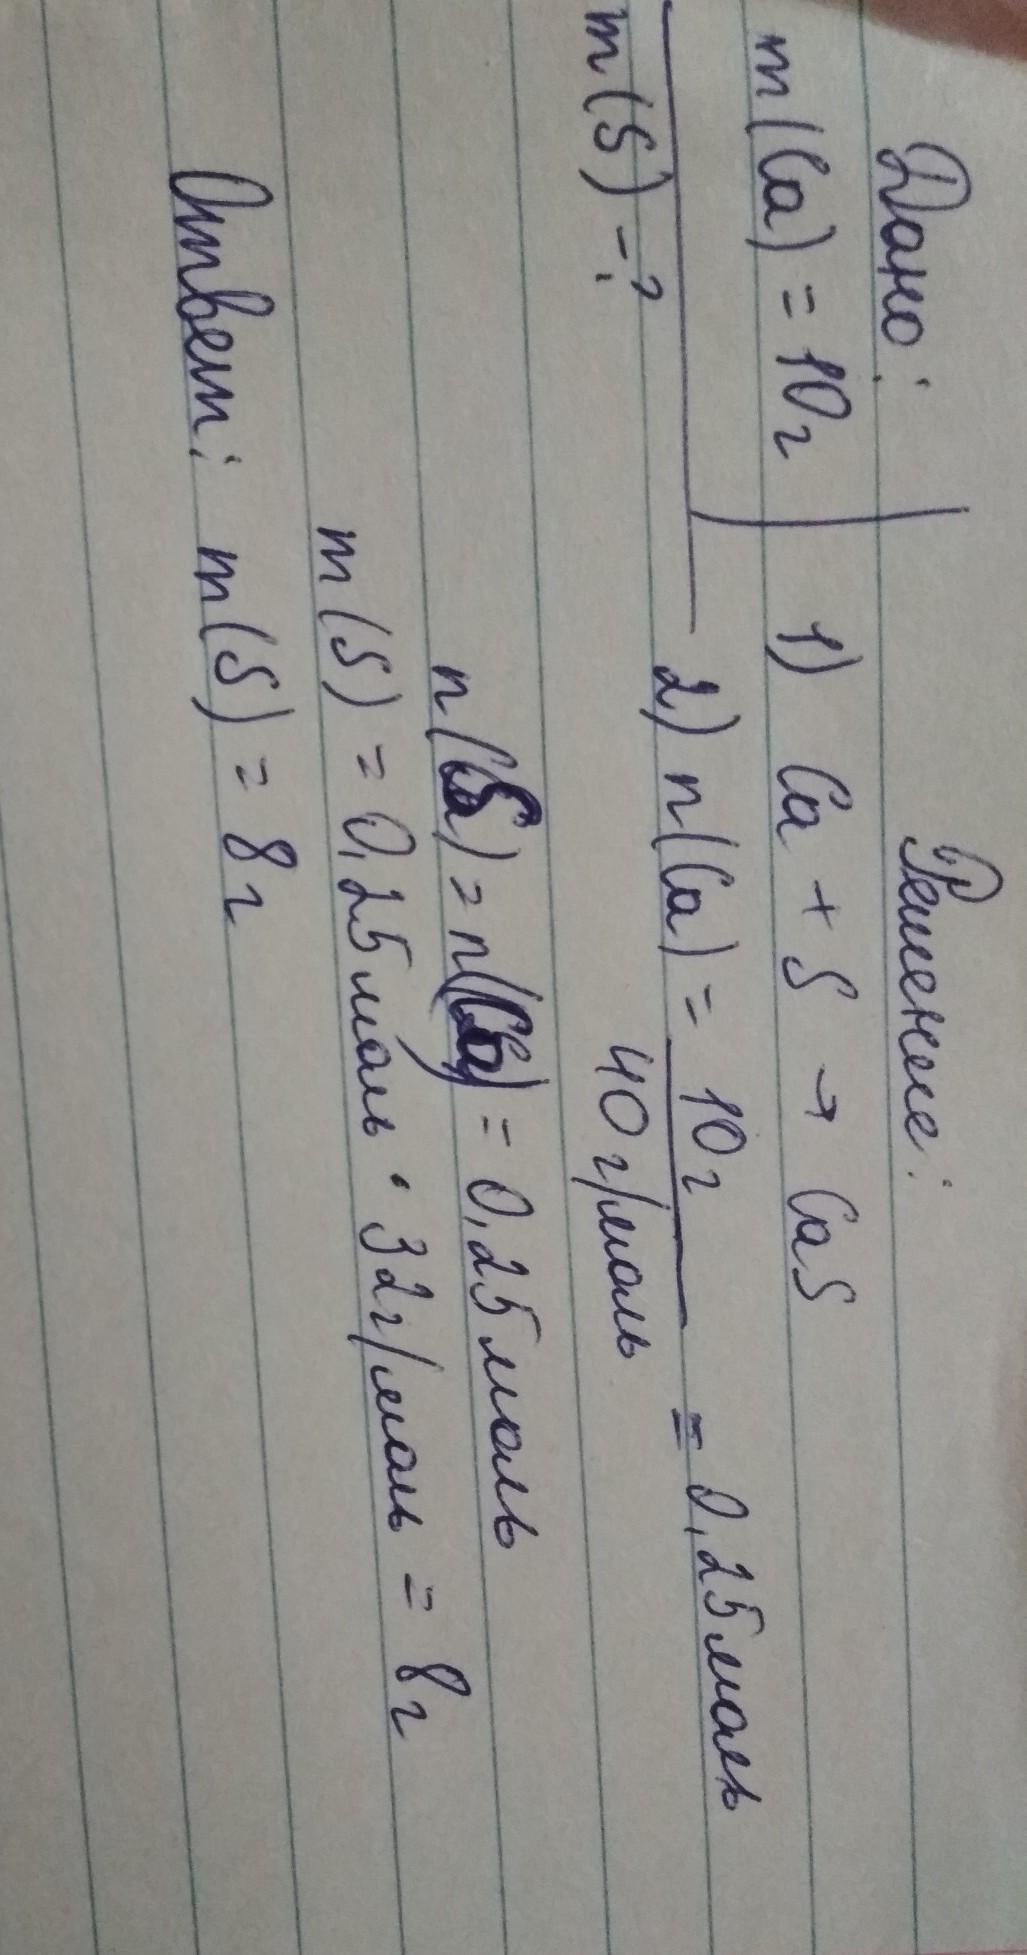 Дано: Решение:
m(Ca) = 10г 1) Ca + S → CaS
m(S) - ? 2) n(Ca) = 10г / 40 г/моль = 0,25 моль
n(S) = n(Ca) = 0,25 моль
m(S) = 0,25 моль · 32г/моль = 8г
Ответ: m(S) = 8г